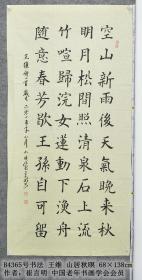 空山新雨後天氣晚来秋
明月松間照清泉石上流
竹喧歸浣女蓮動下漁舟
隨意春芳歇王孫自可留
B4365号书法 王维 山居秋暝 68×138cm
作者：崔言明 中国老年书画学会会员